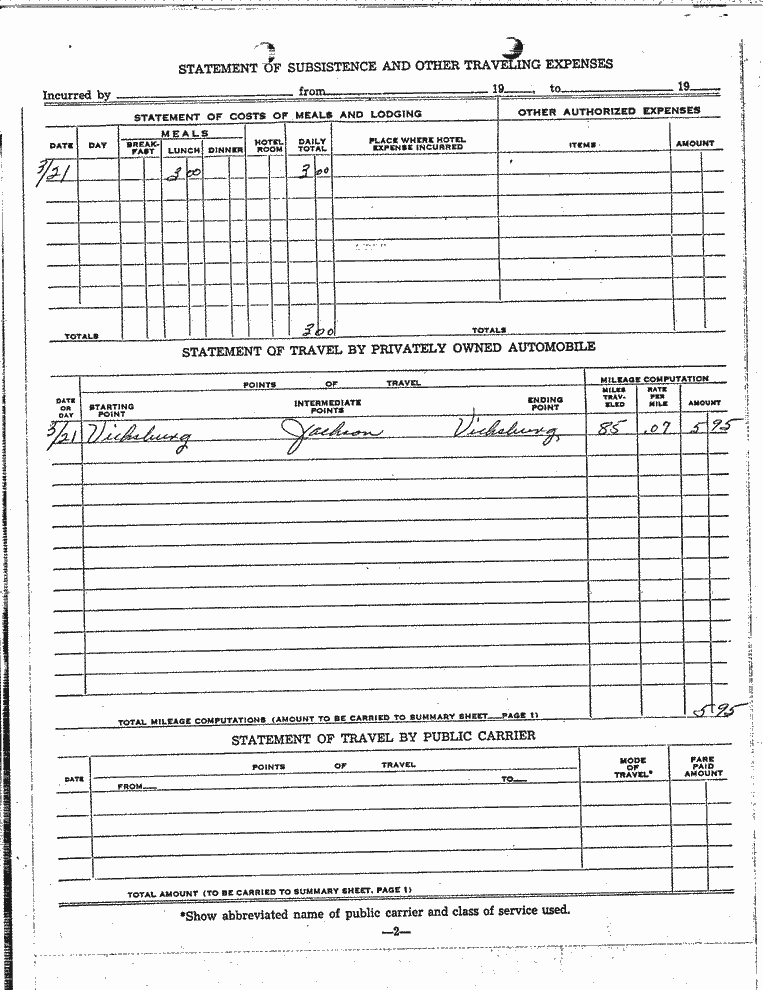 STATEMENT OF SUBSISTENCE AND OTHER TRAVELING EXPENSES
Incurred by from 19 , to 19
STATEMENT OF COSTS OF MEALS AND LODGING OTHER AUTHORIZED EXPENSES
DATE DAY MEALS BREAK-FAST LUNCH DINNER HOTEL ROOM DAILY TOTAL PLACE WHERE HOTEL EXPENSE INCURRED ITEMS AMOUNT
3/21 3 00 3 00
TOTALS 3 00 TOTALS
STATEMENT OF TRAVEL BY PRIVATELY OWNED AUTOMOBILE
POINTS OF TRAVEL MILEAGE COMPUTATION
DATE OR DAY STARTING POINT INTERMEDIATE POINTS ENDING POINT MILES TRAV-ELED RATE PER MILE AMOUNT
3/21 Vicksburg Jackson Vicksburg 85 .07 5 95
TOTAL MILEAGE COMPUTATIONS (AMOUNT TO BE CARRIED TO SUMMARY SHEET—PAGE 1) 5 95
STATEMENT OF TRAVEL BY PUBLIC CARRIER
DATE POINTS OF TRAVEL MODE OF TRAVEL* FARE PAID AMOUNT
FROM— TO—
TOTAL AMOUNT (TO BE CARRIED TO SUMMARY SHEET, PAGE 1)
*Show abbreviated name of public carrier and class of service used.
—2—